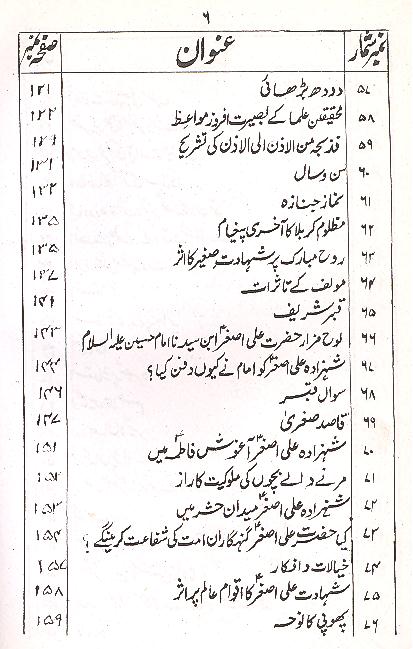 ۶
نمبر شمار عنوان صفحہ نمبر
۵۷ دودھ بڑھائی ۱۲۱
۵۸ محققین علما کے بصیرت افروز مواعظ ۱۲۲
۵۹ فذبحہ من الاذن الی الاذن کی تشریح
۶۰ سن وسال ۱۳۱
۶۱ نماز جنازہ
۶۲ مظلوم کربلا کا آخری پیغام ۱۳۵
۶۳ روح مبارک پر شہادت صغیر کا اثر ۱۳۵
۶۴ مولف کے تاثرات
۶۵ قبر شریف
۶۶ لوح مزار حضرت علی اصغرؑ ابن سیدنا امام حسین علیہ السلام ۱۴۳
۶۷ شہزادہ علی اصغرؑ کو امام نے کیوں دفن کیا؟ ۱۴۴
۶۸ سوال قبر ۱۴۶
۶۹ قاصد صغریٰ ۱۴۷
۷۰ شہزادہ علی اصغرؑ آغوش فاطمہؑ میں ۱۵۱
۷۱ مرنے والے بچوں کی ملوکیت کا راز ۱۵۲
۷۲ شہزادہ علی اصغرؑ میدان حشر میں ۱۵۳
۷۳ کیا حضرت علی اصغرؑ گنہگاران امت کی شفاعت کرینگے؟ ۱۵۴
۷۴ خیالات و افکار ۱۵۷
۷۵ شہادت علی اصغرؑ کا اقوام عالم پر اثر ۱۵۸
۷۶ پھوپی کا نوحہ ۱۵۹